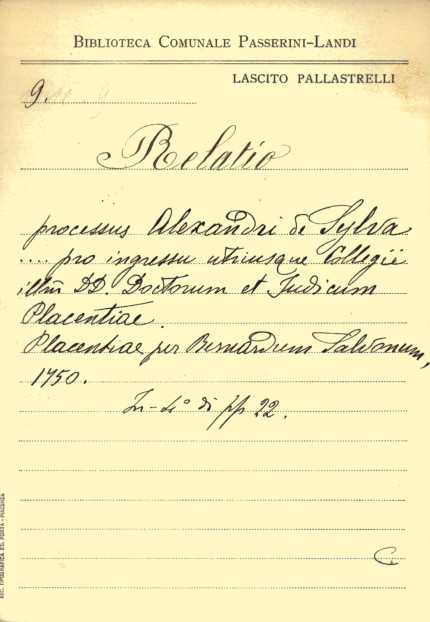 BIBLIOTECA COMUNALE PASSERINI-LANDI
LASCITO PALLASTRELLI
9.
Relatio
processus Alexandri de Sylva
.... pro ingressu utriusque Collegii
illm̃ DD. Doctorum et Judicum
Placentiae.
Placentiae per Bernardum Salvonum,
1750.
In-4° di pp 22.
C.